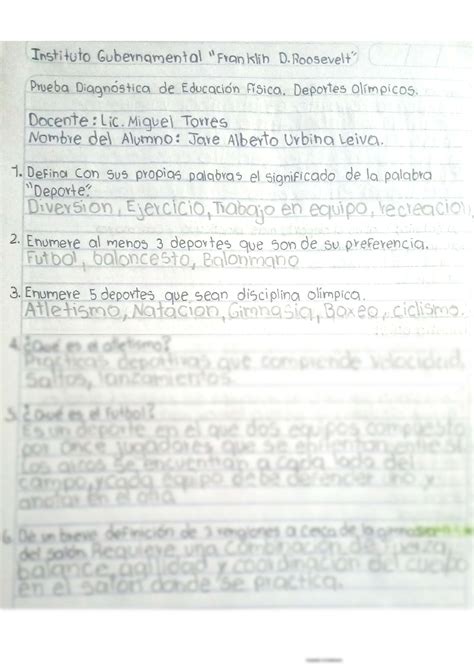 Instituto Gubernamental "Franklin D. Roosevelt"
Prueba Diagnóstica de Educación Física. Deportes Olímpicos.
Docente: Lic. Miguel Torres
Nombre del Alumno: Jare Alberto Urbina Leiva.
1. Defina con sus propias palabras el significado de la palabra
"Deporte"
Diversion, Ejercicio, Trabajo en equipo, recreacion,
2. Enumere al menos 3 deportes que son de su preferencia.
Futbol, baloncesto, Balonmano
3. Enumere 5 deportes que sean disciplina olimpica.
Atletismo, Natacion, Gimnasia, Boxeo, ciclismo.
4. ¿Qué es el atletismo?
Practicas deportivas que comprende velocidad,
Saltos, lanzamientos.
5. ¿Qué es el futbol?
Es un deporte en el que dos equipos compuesto
por once jugadores que se enfrentan entre si
Los arcos se encuentran a cada lado del
campo, y cada equipo debe defender uno y
anotar en el
6. De un breve definición de 3 renglones a cerca de la gimnasia
del salón. Requiere una combinación de fuerza,
balance, agilidad y coordinación del cuerpo
en el salon donde se practica.